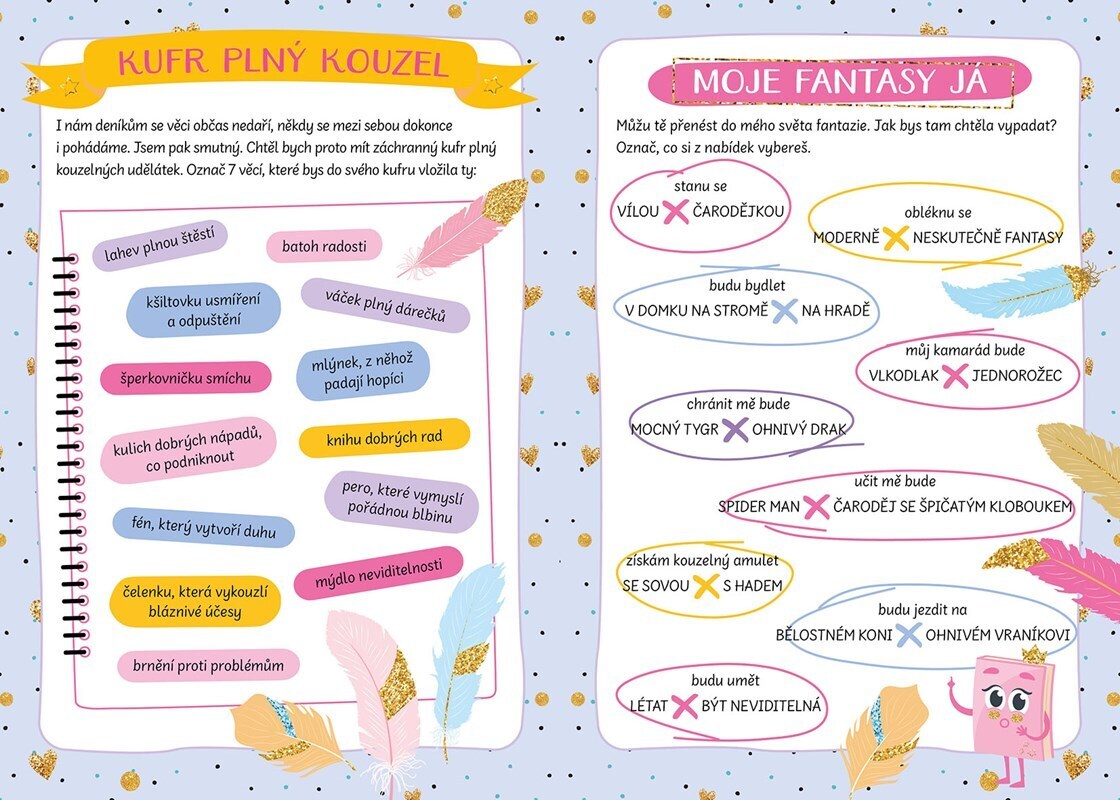 KUFR PLNÝ KOUZEL
I nám deníkům se věci občas nedaří, někdy se mezi sebou dokonce
i pohádáme. Jsem pak smutný. Chtěl bych proto mít záchranný kufr plný
kouzelných udělátek. Označ 7 věcí, které bys do svého kufru vložila ty:
lahev plnou štěstí
batoh radosti
kšiltovku usmíření
a odpuštění
váček plný dárečků
šperkovničku smíchu
mlýnek, z něhož
padají hopíci
kulich dobrých nápadů,
co podniknout
knihu dobrých rad
pero, které vymyslí
pořádnou blbinu
fén, který vytvoří duhu
mýdlo neviditelnosti
čelenku, která vykouzlí
bláznivé účesy
brnění proti problémům
MOJE FANTASY JÁ
Můžu tě přenést do mého světa fantazie. Jak bys tam chtěla vypadat?
Označ, co si z nabídek vybereš.
stanu se
VÍLOU X ČARODĚJKOU
obléknu se
MODERNĚ X NESKUTEČNĚ FANTASY
budu bydlet
V DOMKU NA STROMĚ X NA HRADĚ
můj kamarád bude
VLKODLAK X JEDNOROŽEC
chránit mě bude
MOCNÝ TYGR X OHNIVÝ DRAK
učit mě bude
SPIDER MAN X ČARODĚJ SE ŠPIČATÝM KLOBOUKEM
získám kouzelný amulet
SE SOVOU X S HADEM
budu jezdit na
BĚLOSTNÉM KONI X OHNIVÉM VRANÍKOVI
budu umět
LÉTAT X BÝT NEVIDITELNÁ